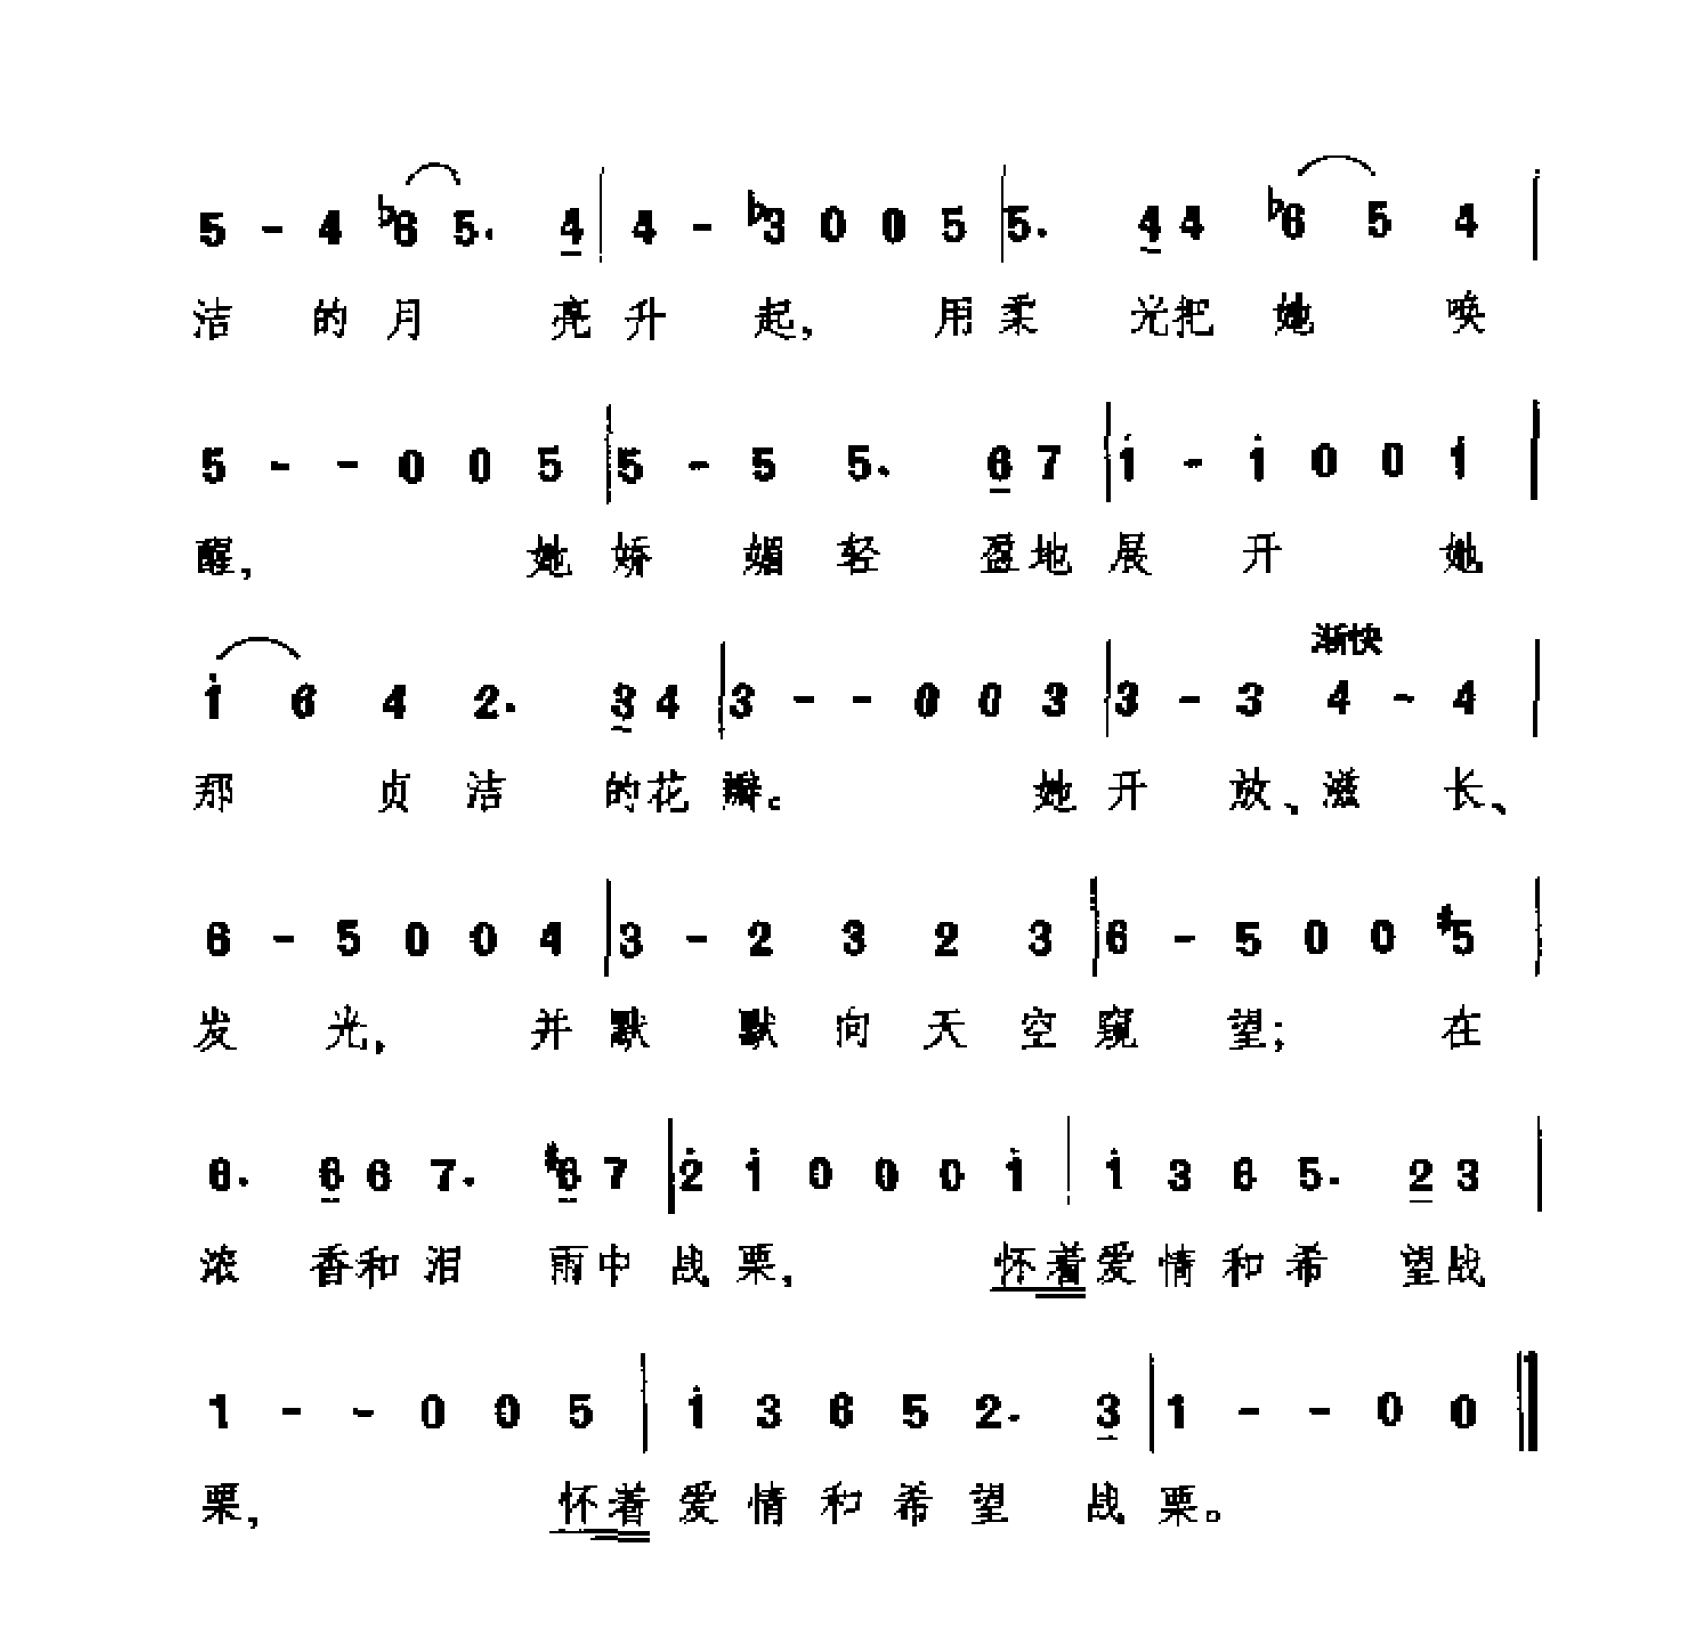 5 - 4 ♭6 5. 4 | 4 - ♭3 0 0 5 | 5. 4 4 ♭6 5 4 |
洁 的 月 亮 升 起， 用 柔 光 把 她 唤
5 - - 0 0 5 | 5 - 5 5. 6 7 | i - i 0 0 i |
醒， 她 娇 媚 轻 盈 地 展 开 她
渐快
i 6 4 2. 3 4 | 3 - - 0 0 3 | 3 - 3 4 - 4 |
那 贞 洁 的 花 瓣。 她 开 放、滋 长、
6 - 5 0 0 4 | 3 - 2 3 2 3 | 6 - 5 0 0 #5 |
发 光， 并 默 默 向 天 空 窥 望； 在
6. 6 6 7. #6 7 | 2̇ i 0 0 0 i | i 3 6 5. 2 3 |
浓 香 和 泪 雨 中 战 栗， 怀 着 爱 情 和 希 望 战
1 - - 0 0 5 | i 3 6 5 2. 3 | 1 - - 0 0 ‖
栗， 怀 着 爱 情 和 希 望 战 栗。